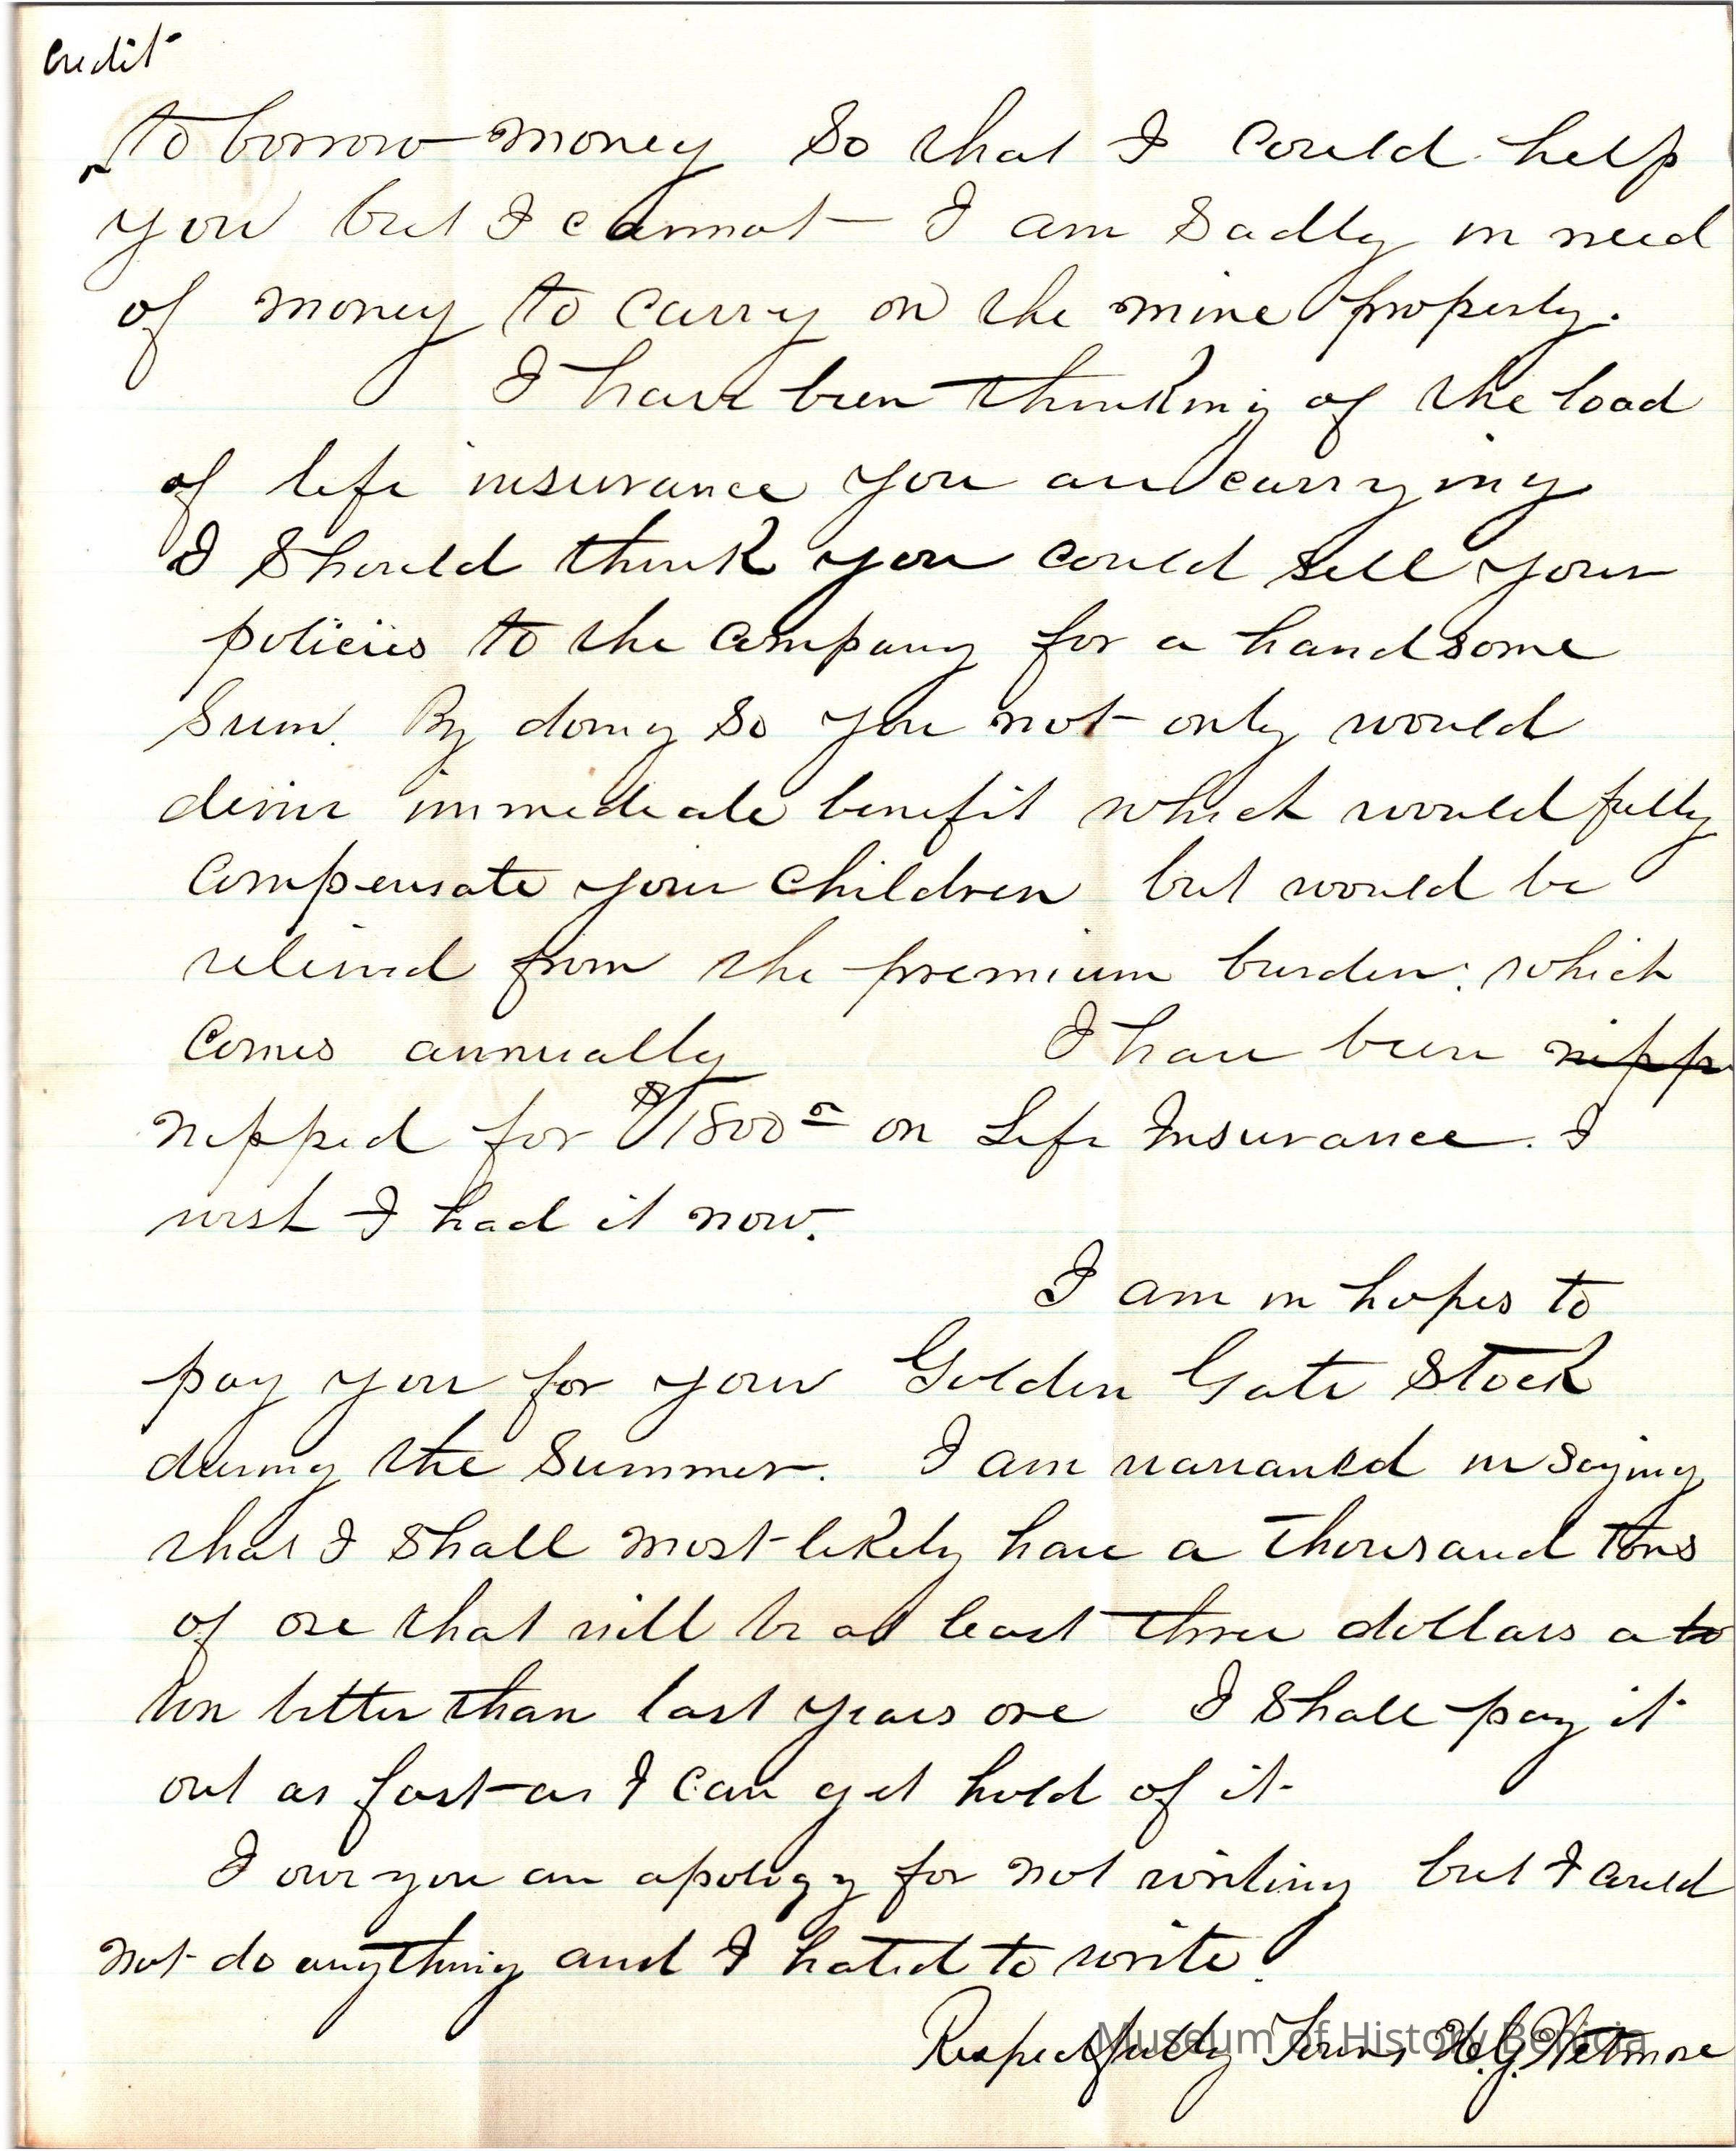 credit
to borrow money So that I Could help
you but I cannot — I am Sadly in need
of money to Carry on the mine property.
I have been thinking of the load
of life insurance you are carrying
I Should think you could Sell your
policies to the Company for a handsome
Sum. By doing So you not only would
derive immediate benefit which would fully
Compensate your Children but would be
relieved from the premium burden which
Comes annually I have been nipp
nipped for $1800 on Life Insurance. I
wish I had it now.
I am in hopes to
pay you for your Golden Gate Stock
during the Summer. I am warranted in Saying
that I Shall most likely have a Thousand Tons
of ore that will be at least three dollars a to
ton better than last years ore I Shall pay it
out as fast as I can get hold of it
I owe you an apology for not writing but I could
not do anything and I hated to write.
Respectfully Yours H.G. Wetmore
Museum of History Benicia